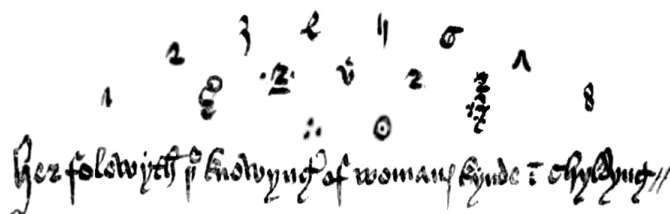 1 2 3 6 8
2 2
Her folowyth þe knowyng of womans kynde ī chyldyng //